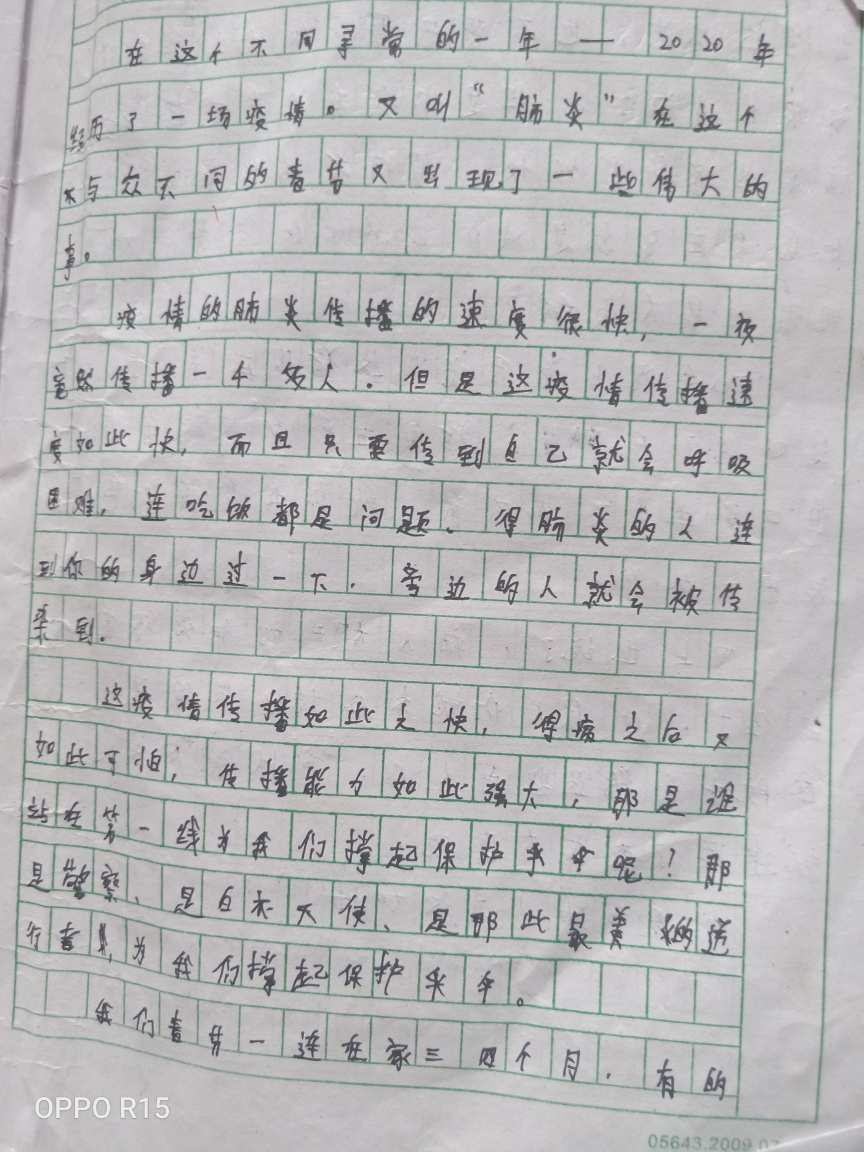 在这个不同寻常的一年——2020年
经历了一场疫情。又叫“肺炎”在这个
与众不同的春节又出现了一些伟大的
事。
疫情的肺炎传播的速度很快，一夜
竟然传播一千多人.但是这疫情传播速
度如此快，而且只要传到自己就会呼吸
困难，连吃饭都是问题、得肺炎的人连
到你的身边过一下.旁边的人就会被传
染到.
这疫情传播如此之快，得病之后又
如此可怕，传播能力如此强大，那是谁
站在第一线为我们撑起保护伞呢？那
是警察、是白衣天使、是那些最美的逆
行者，为我们撑起保护伞。
我们春节一连在家三四个月.有的
OPPO R15
05643.2009.07